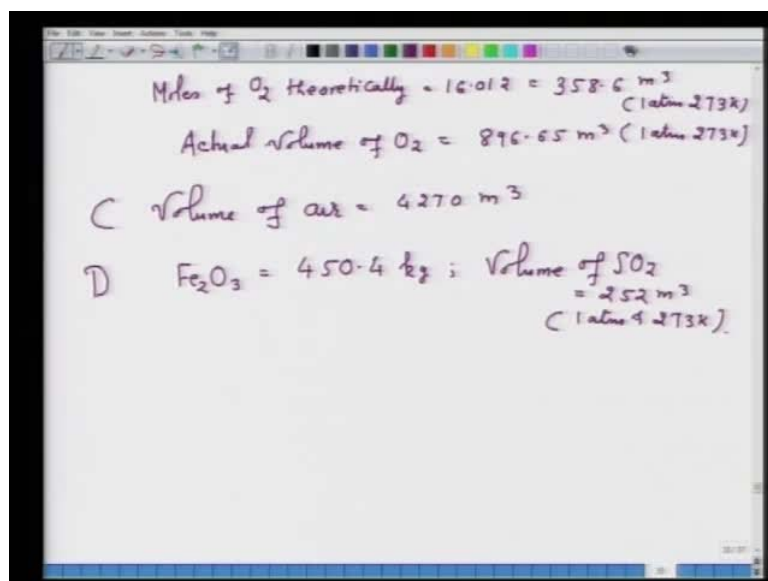 File Edit View Insert Actions Tools Help
Moles of O2 theoretically = 16.012 = 358.6 m3
(1 atm 273K)
Actual Volume of O2 = 896.65 m3 (1 atm 273K)
C Volume of air = 4270 m3
D Fe2O3 = 450.4 kg ; Volume of SO2
= 252 m3
(1 atm & 273K).